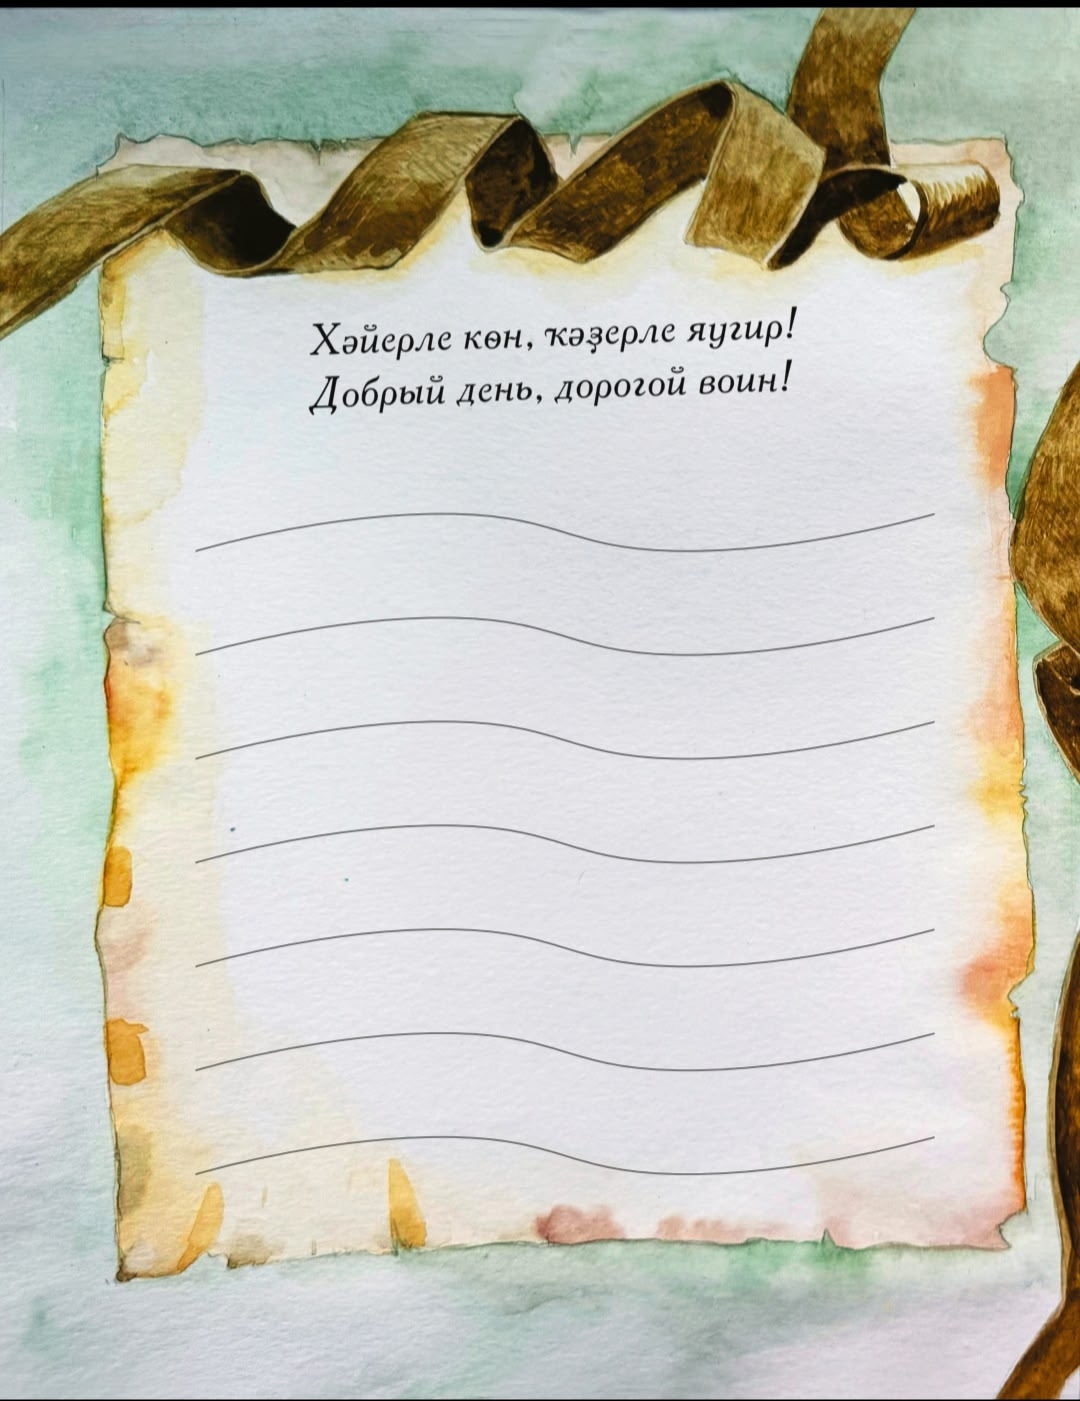 Хәйерле көн, ҡәҙерле яугир!
Добрый день, дорогой воин!